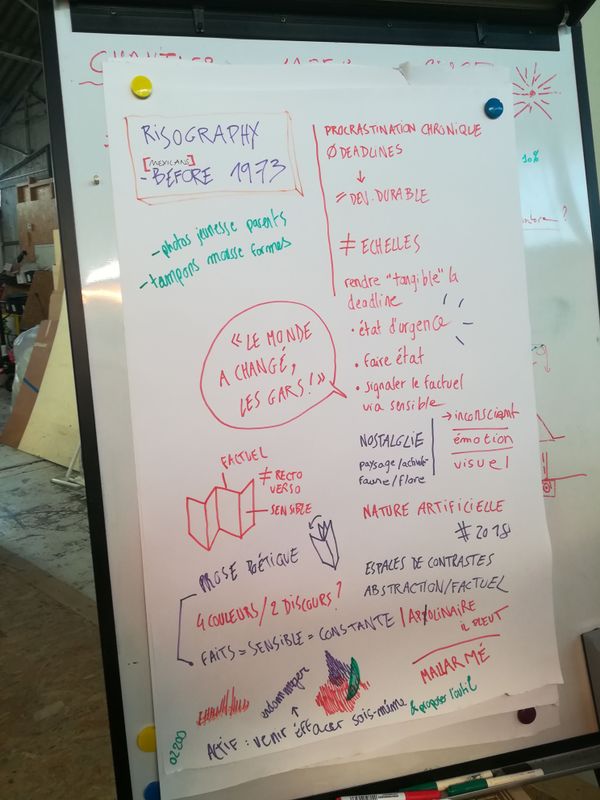 RISOGRAPHY
[MEXICANS]
- BEFORE 1973
- photos jeunesse parents
- tampons mousse formes
PROCRASTINATION CHRONIQUE
Ø DEADLINES
↓
= DEV. DURABLE
≠ ECHELLES
rendre "tangible" la
deadline
• état d'urgence
• faire état
• signaler le factuel
via sensible
« LE MONDE
A CHANGÉ,
LES GARS ! »
NOSTALGIE
paysage/activité
faune/flore
→ inconscient
émotion
visuel
FACTUEL
≠ RECTO
VERSO
SENSIBLE
NATURE ARTIFICIELLE
# 2018
PROSE POÉTIQUE
ESPACES DE CONTRASTES
ABSTRACTION/FACTUEL
4 COULEURS / 2 DISCOURS ?
FAITS = SENSIBLE = CONSTANTE
APOLLINAIRE
IL PLEUT
MALLARMÉ
endommager
ACTIF : venir EFFACER sois-même
& proposer l'outil
10%